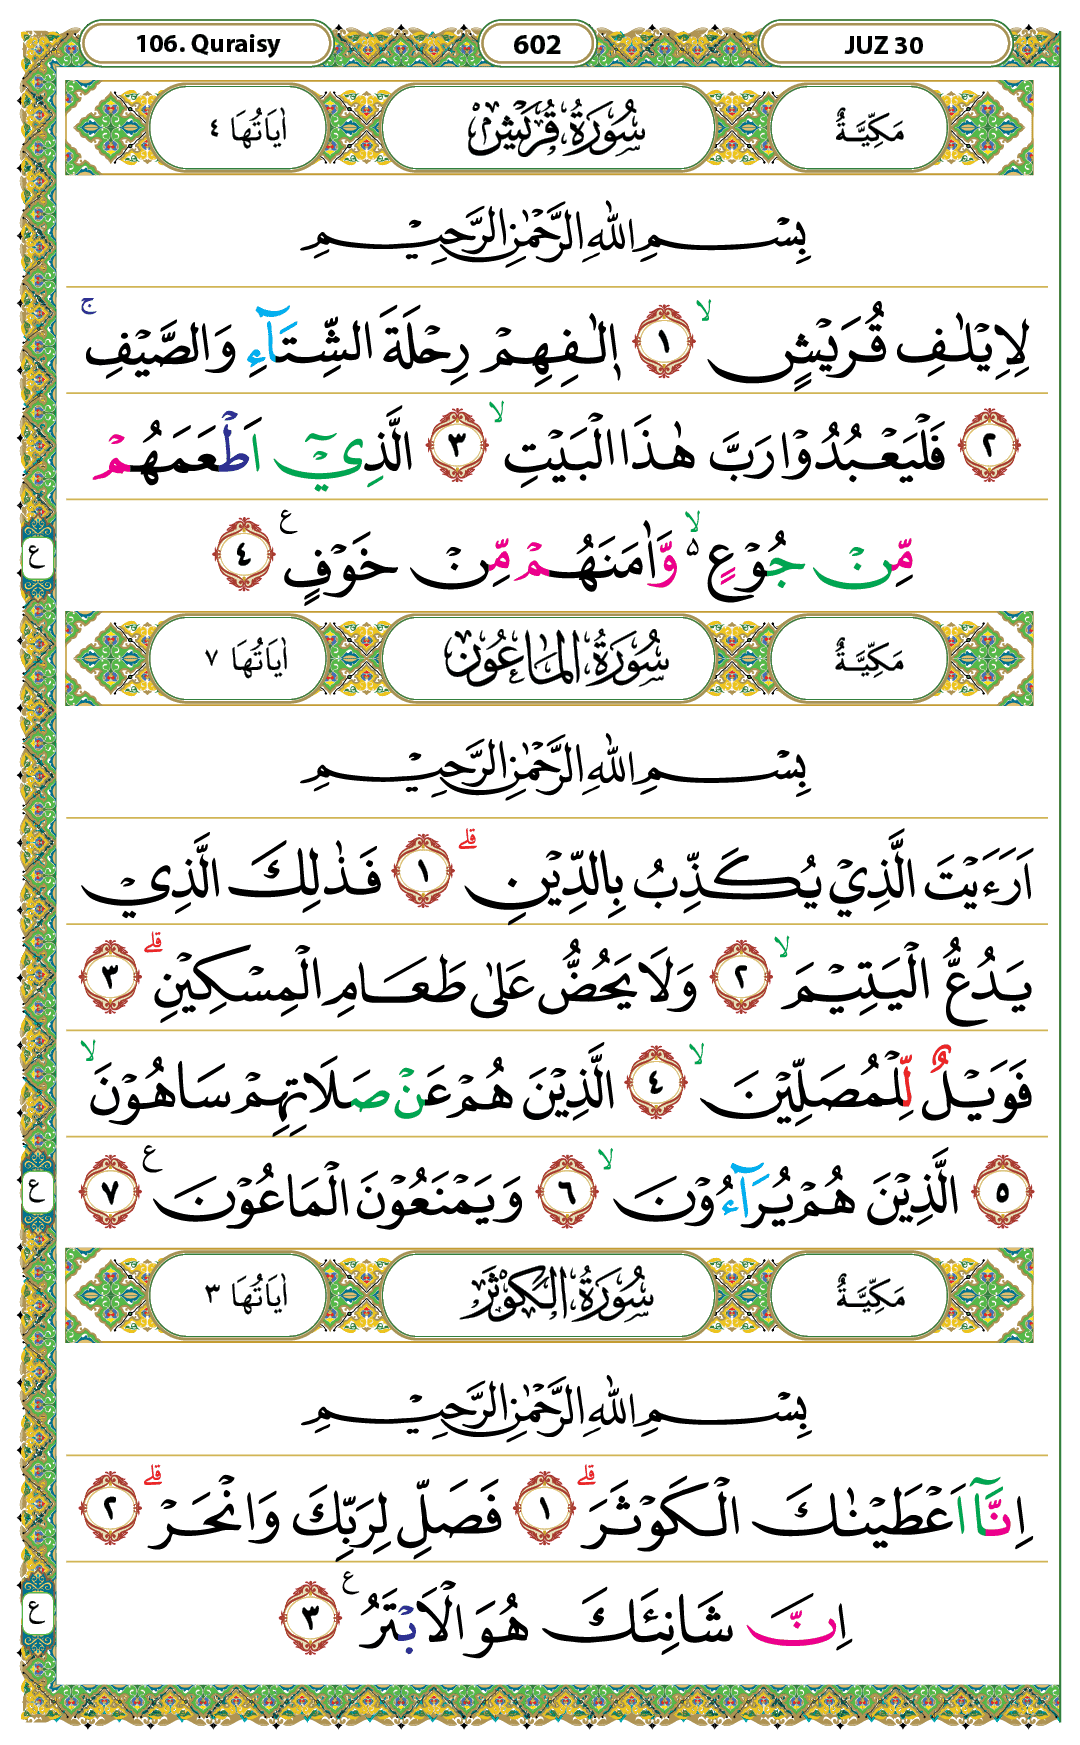 106. Quraisy 602 JUZ 30
مَكِّيَّةٌ سُوْرَةُ قُرَيْشٍ اٰيَاتُهَا ٤
بِسْمِ اللّٰهِ الرَّحْمٰنِ الرَّحِيْمِ
لِاِيْلٰفِ قُرَيْشٍۙ ١ اٖلٰفِهِمْ رِحْلَةَ الشِّتَاۤءِ وَالصَّيْفِۚ
٢ فَلْيَعْبُدُوْا رَبَّ هٰذَا الْبَيْتِۙ ٣ الَّذِيْٓ اَطْعَمَهُمْ
مِّنْ جُوْعٍ ەۙ وَّاٰمَنَهُمْ مِّنْ خَوْفٍ ࣖ ٤
ع
مَكِّيَّةٌ سُوْرَةُ الْمَاعُوْنَ اٰيَاتُهَا ٧
بِسْمِ اللّٰهِ الرَّحْمٰنِ الرَّحِيْمِ
اَرَءَيْتَ الَّذِيْ يُكَذِّبُ بِالدِّيْنِۗ ١ فَذٰلِكَ الَّذِيْ
يَدُعُّ الْيَتِيْمَۙ ٢ وَلَا يَحُضُّ عَلٰى طَعَامِ الْمِسْكِيْنِۗ ٣
فَوَيْلٌ لِّلْمُصَلِّيْنَۙ ٤ الَّذِيْنَ هُمْ عَنْ صَلَاتِهِمْ سَاهُوْنَۙ
٥ الَّذِيْنَ هُمْ يُرَاۤءُوْنَۙ ٦ وَيَمْنَعُوْنَ الْمَاعُوْنَ ࣖ ٧
ع
مَكِّيَّةٌ سُوْرَةُ الْكَوْثَرَ اٰيَاتُهَا ٣
بِسْمِ اللّٰهِ الرَّحْمٰنِ الرَّحِيْمِ
اِنَّآ اَعْطَيْنٰكَ الْكَوْثَرَۗ ١ فَصَلِّ لِرَبِّكَ وَانْحَرْۗ ٢
اِنَّ شَانِئَكَ هُوَ الْاَبْتَرُ ࣖ ٣
ع